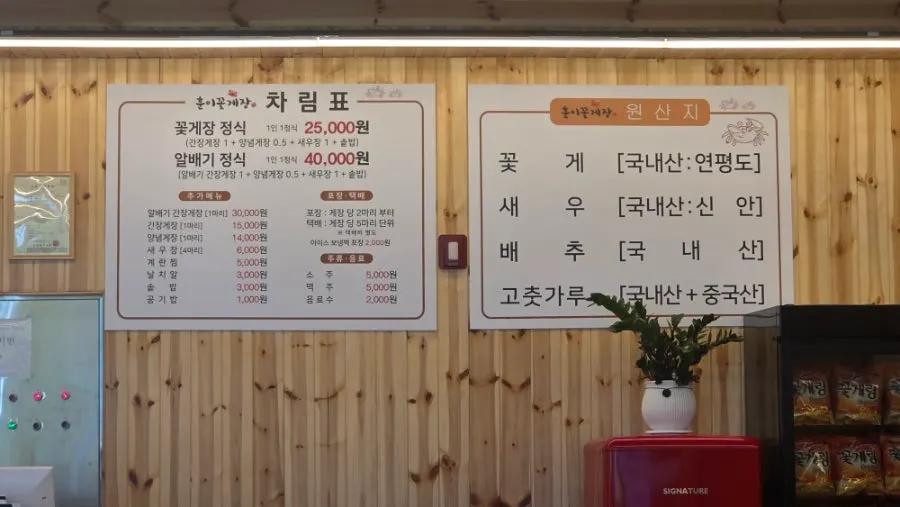 훈이꽃게장 차림표
꽃게장 정식 1인 1정식 25,000원
(간장게장 1 + 양념게장 0.5 + 새우장 1 + 솥밥)
알배기 정식 1인 1정식 40,000원
(알배기 간장게장 1 + 양념게장 0.5 + 새우장 1 + 솥밥)
추가메뉴
알배기 간장게장 [1마리] 30,000원
간장게장 [1마리] 15,000원
양념게장 [1마리] 14,000원
새우장 [4마리] 6,000원
계란찜 5,000원
날치알 3,000원
솥밥 3,000원
공기밥 1,000원
포장·택배
포장 : 게장 당 2마리 부터
택배 : 게장 당 5마리 단위
※ 택배비 별도
아이스 보냉백 포장 2,000원
주류·음료
소주 5,000원
맥주 5,000원
음료수 2,000원
훈이꽃게장 원산지
꽃게 [국내산:연평도]
새우 [국내산:신안]
배추 [국내산]
고춧가루 [국내산+중국산]
꽃게랑 꽃게랑
꽃게랑 꽃게랑
SIGNATURE